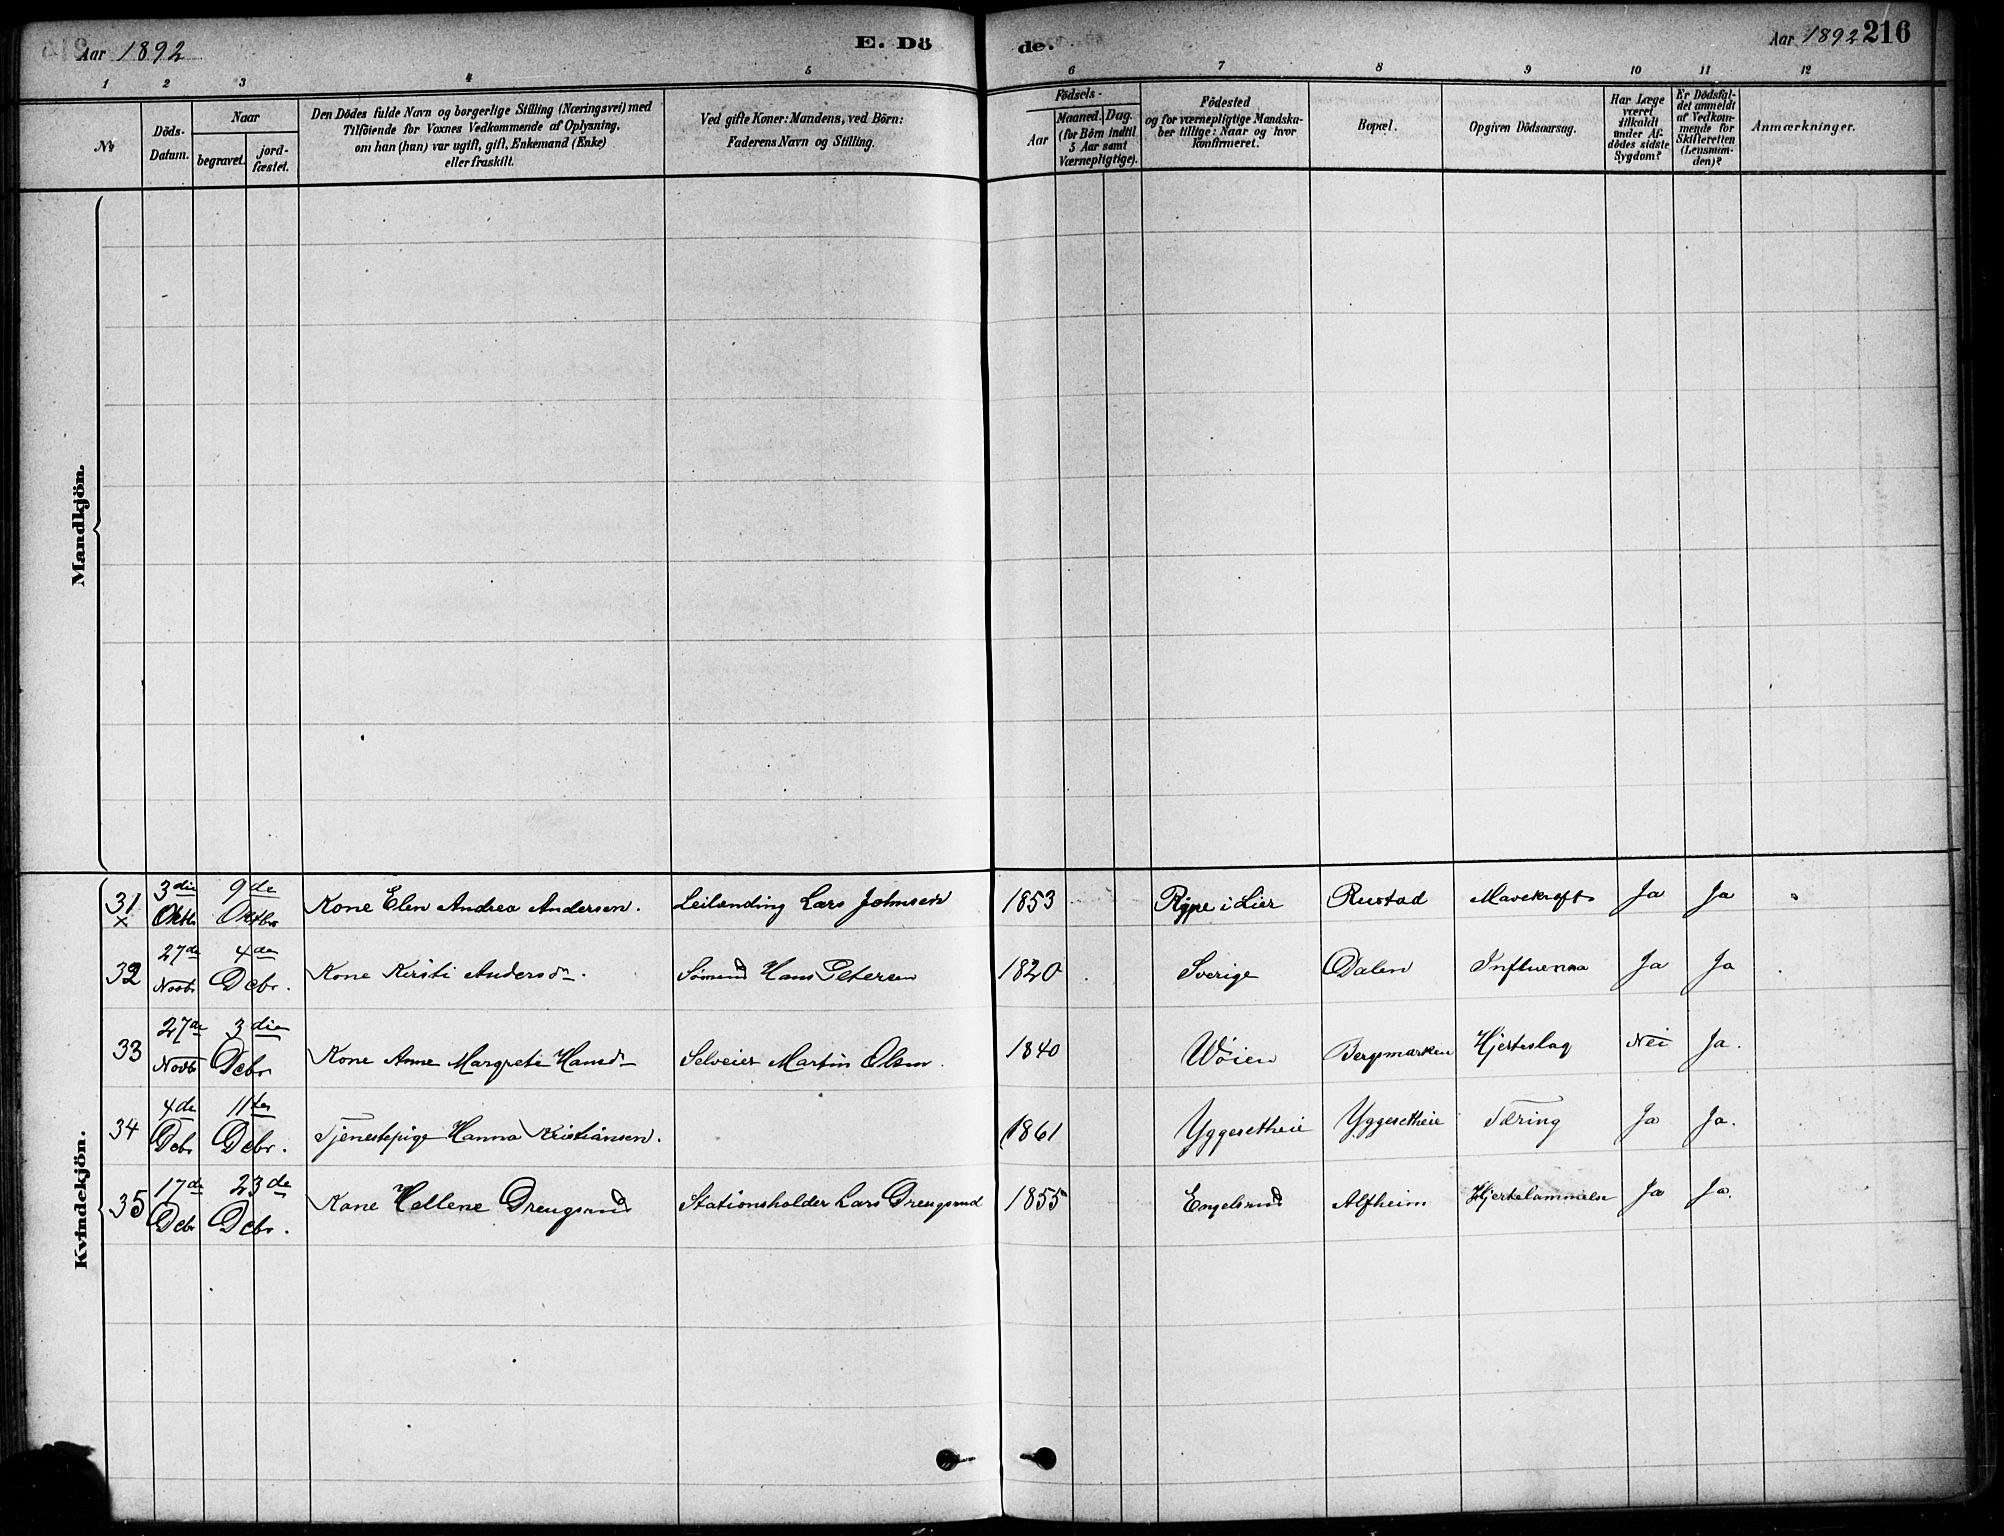 Aar 1892
E. Dö
de.
Aar 1892
216
1 2 3 4 5 6 7 8 9 10 11 12
No
Döds-
Datum.
Naar
begravet.
jord-
fæstet.
Den Dödes fulde Navn og borgerlige Stilling (Næringsvei) med
Tilföiende for Voxnes Vedkommende af Oplysning,
om han (hun) var ugift, gift, Enkemand (Enke)
eller fraskilt.
Ved gifte Koner: Mandens, ved Börn:
Faderens Navn og Stilling.
Födsels-
Aar
Maaned.
Dag.
(for Börn indtil
5 Aar samt
Værnepligtige).
Födested
og for værnepligtige Mandska-
ber tillige: Naar og hvor
konfirmeret.
Bopæl.
Opgiven Dödsaarsag.
Har Læge
været
tilkaldt
under Af-
dödes sidste
Sygdom?
Er Dödsfal-
det anmeldt
af Vedkom-
mende for
Skifteretten
(Lensman-
den)?
Anmærkninger.
Mandkjön.
Kvindekjön.
31 x 3die Oktbr 9de Oktbr Kone Elen Andrea Andersen. Leilænding Lars Johnsen 1853 Rype i Lier Rustad Mavekreft Ja Ja
32 27de Novbr 4de Debr. Kone Kirsti Andersdn. Sömand Hans Petersen 1820 Sverige Dalen Influensa Ja Ja
33 27de Novbr 3die Debr Kone Anne Margrete Hansdn Selveier Martin Olsen. 1840 Wöien Bergsmarken Hjerteslag Nei Ja.
34 4de Debr 11te Debr. Tjenestepige Hanna Kristiansen. 1861 Yggesetheie Yggesetheie Tæring Ja Ja.
35 17de Debr 23de Debr. Kone Hellene Drengsrud Stationsholder Lars Drengsrud 1855 Engelsrud Alfheim Hjertelammelse Ja Ja.